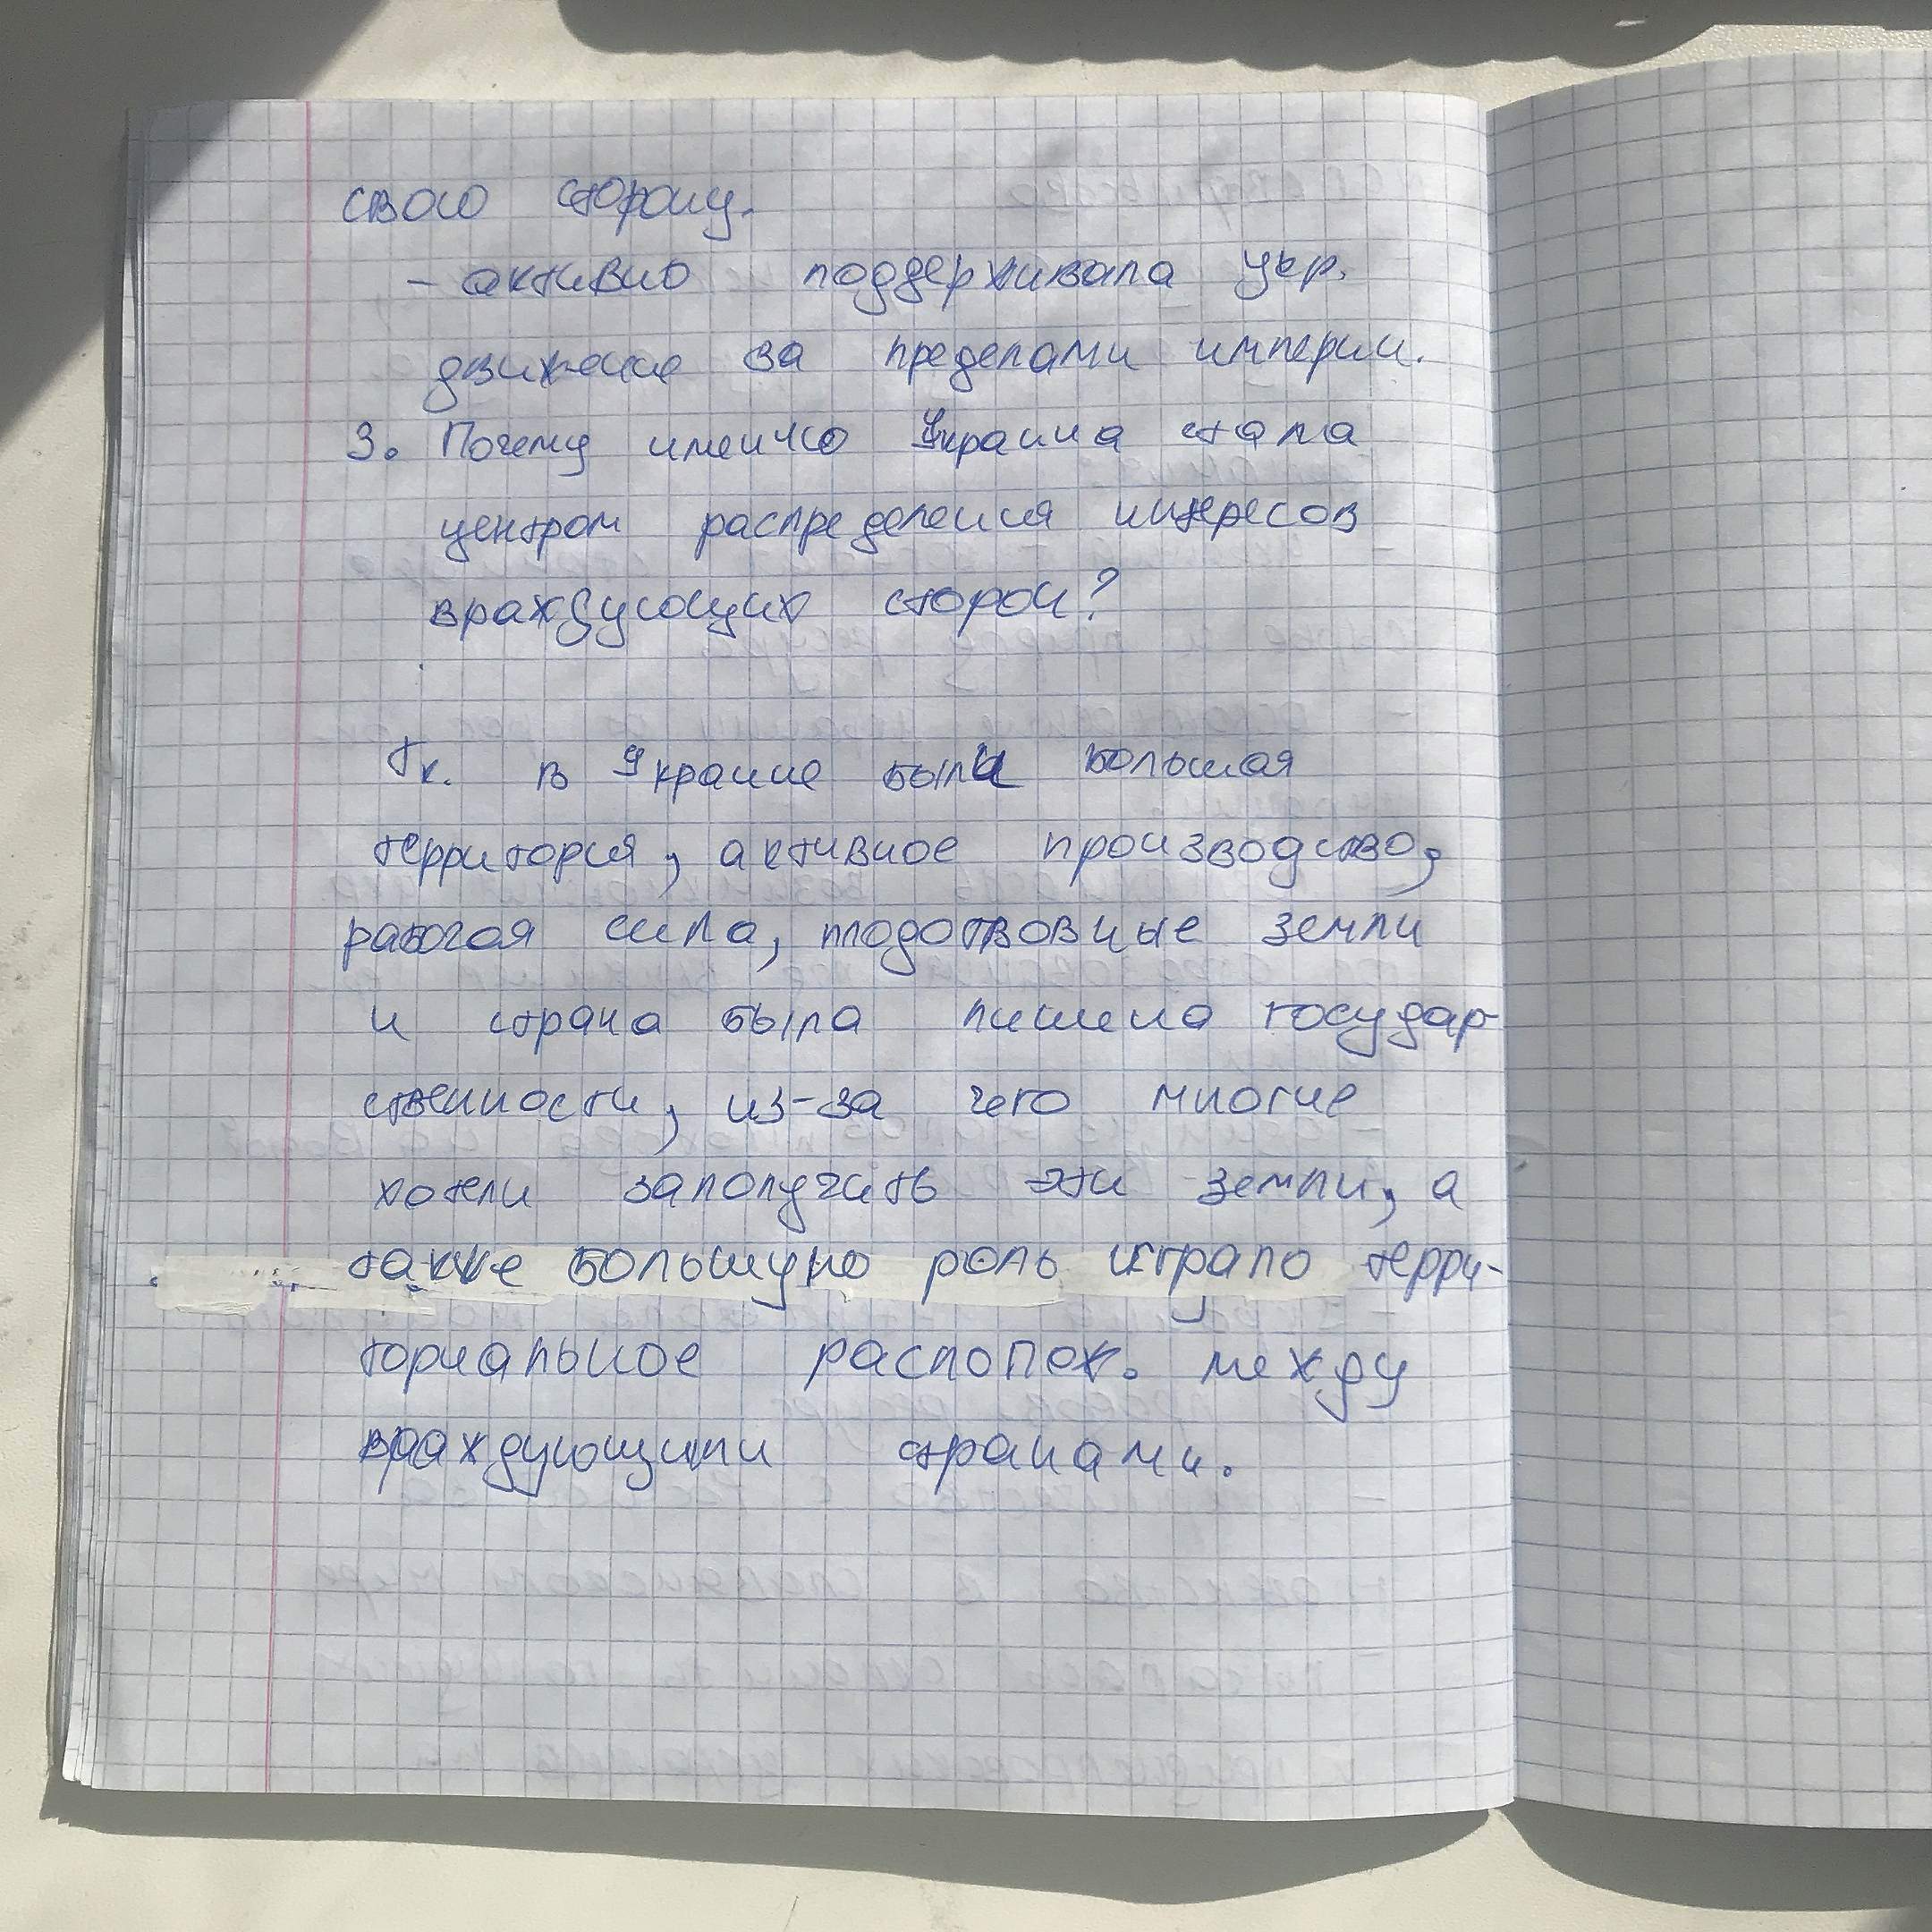 свою сторону.
- активно поддерживала укр.
движение за пределами империи.
3. Почему именно Украина стала
центром распределения интересов
враждующих сторон?
Тк. в Украине были большая
территория, активное производство,
рабочая сила, плодотвовные земли
и страна была лишена государ-
ственности, из-за чего многие
хотели заполучить эти земли, а
также большую роль играло терри-
ториальное располож. между
враждующими странами.